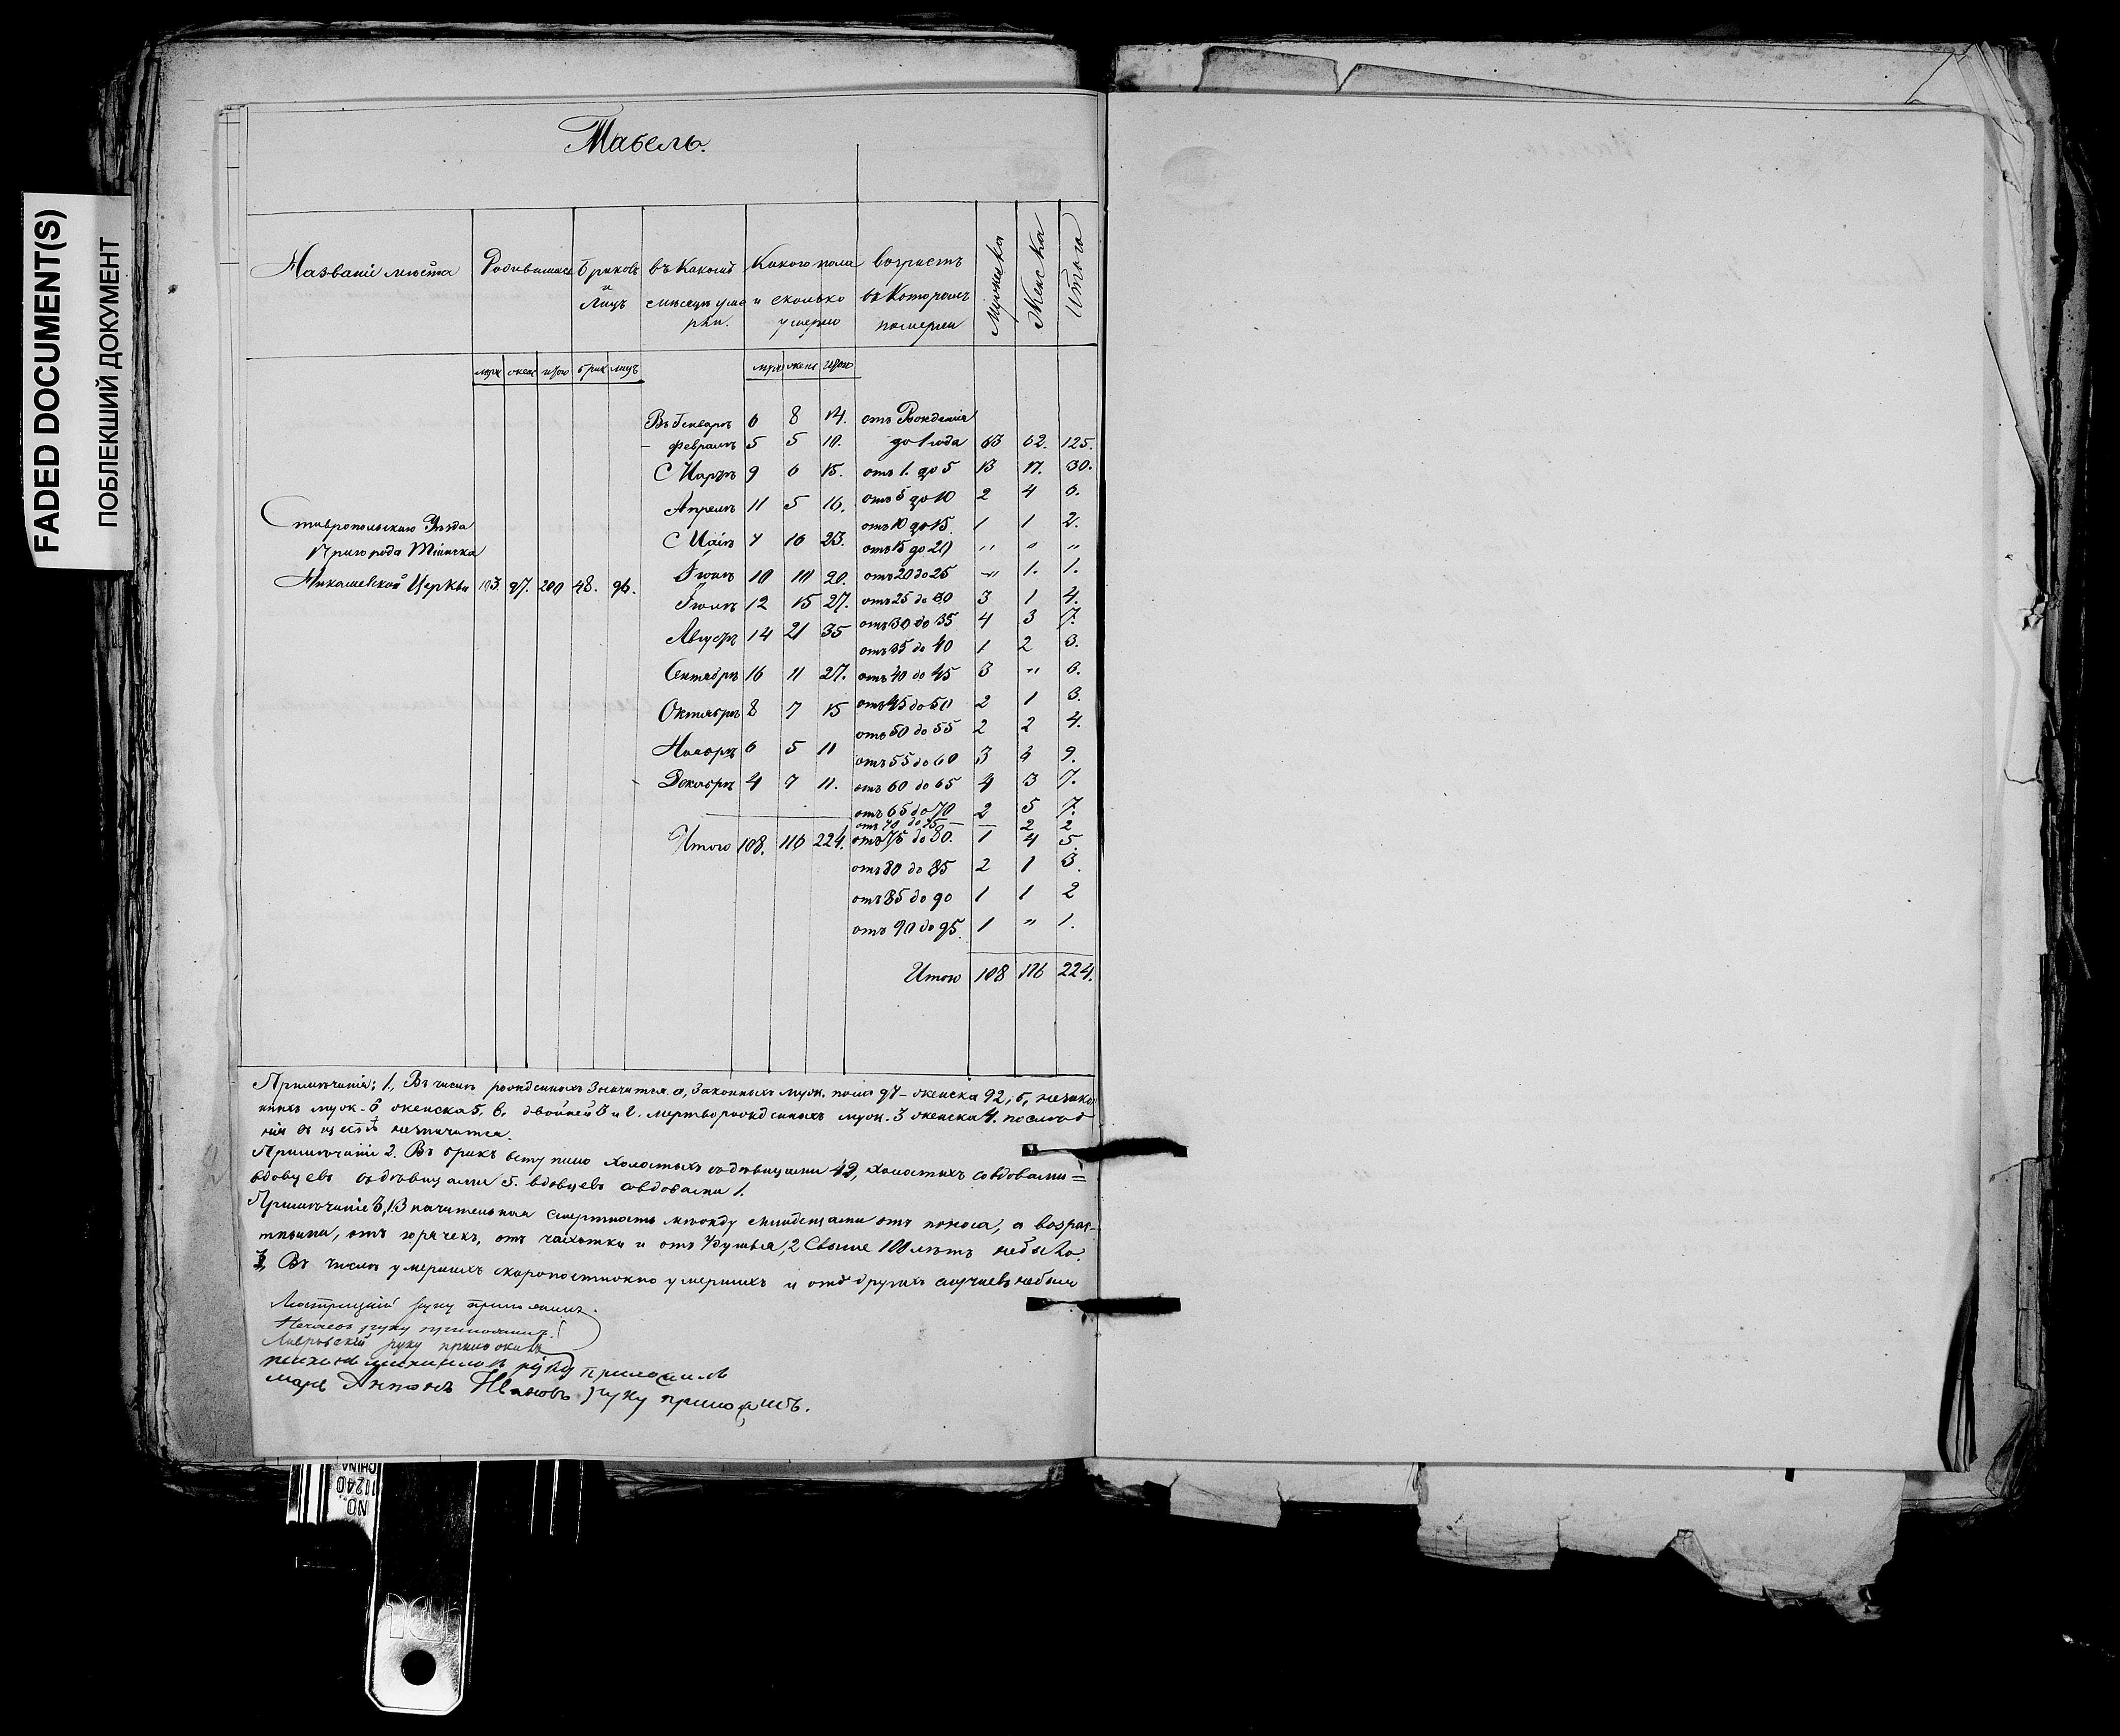 FADED DOCUMENT(S)
ПОБЛЕКШИЙ ДОКУМЕНТ
Табель.
Названіе мѣста Родившихся Браковъ и Лицъ въ Какомъ мѣсяцѣ умерли. Какого пола и сколько умерло возрастъ въ Которомъ померли Мужска Женска Итого
муж женс итого брак лицъ муж женс итого
Въ Генварѣ 6 8 14. отъ Рожденія
– Февралѣ 5 5 10. до 1 года 63 62. 125.
Мартѣ 9 6 15. отъ 1. до 5 13 17. 30.
Апрелѣ 11 5 16. отъ 5 до 10 2 4 6.
отъ 10 до 15 1 1 2.
Маѣ 7 16 23. отъ 15 до 20 " " "
Іюнѣ 10 10 20. отъ 20 до 25 " 1. 1.
Іюлѣ 12 15 27. отъ 25 до 30 3 1 4.
отъ 30 до 35 4 3 7.
Августѣ 14 21 35 отъ 35 до 40 1 2 3.
Сентябрѣ 16 11 27. отъ 40 до 45 3 " 3.
Октябрѣ 8 7 15 отъ 45 до 50 2 1 3.
отъ 50 до 55 2 2 4.
Ноябрѣ 6 5 11 отъ 55 до 60 3 6 9.
Декабрѣ 4 7 11. отъ 60 до 65 4 3 7.
отъ 65 до 70 2 5 7.
отъ 70 до 75 – – 2 2
Итого 108. 116 224. отъ 75 до 80. 1 4 5.
отъ 80 до 85 2 1 3.
отъ 85 до 90 1 1 2
отъ 90 до 95. 1 " 1.
Итого 108 116 224.
Ставропольскаго Уѣзда
Пригорода Тіинска
Николаевской Церкви 103. 97. 200 48. 96.
Примѣчаніе: 1, Въ числѣ рожденныхъ Значится а, Законныхъ муж. пола 97 – женска 92, б, незако
нныхъ муж. 6 женска 5. в. двойней 3 и г. мертворожденныхъ муж. 3 женска 4.
незначится.
Примѣчаніе 2. Въ бракъ вступило холостыхъ съ дѣвицами 42, холостыхъ со вдовами =
вдовцевъ съ дѣвицами 5. вдовцевъ со вдовами 1.
Примѣчаніе 3, 1 Значительная смертность между младенцами отъ поноса, а возрас-
тными, отъ горячекъ, отъ чахотки и отъ Удушья, 2 Свыше 100 лѣтъ небыло.
3, Въ числѣ умершихъ скоропостижно умершихъ и отъ другихъ случаевъ небыло
руку приложилъ.
Нечаевъ руку приложилъ.
Лавровскій руку приложилъ
руку приложилъ
Антонъ Ивановъ руку приложилъ.
NO.
11240
CHINA